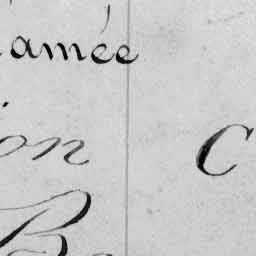 amée
ion C
B